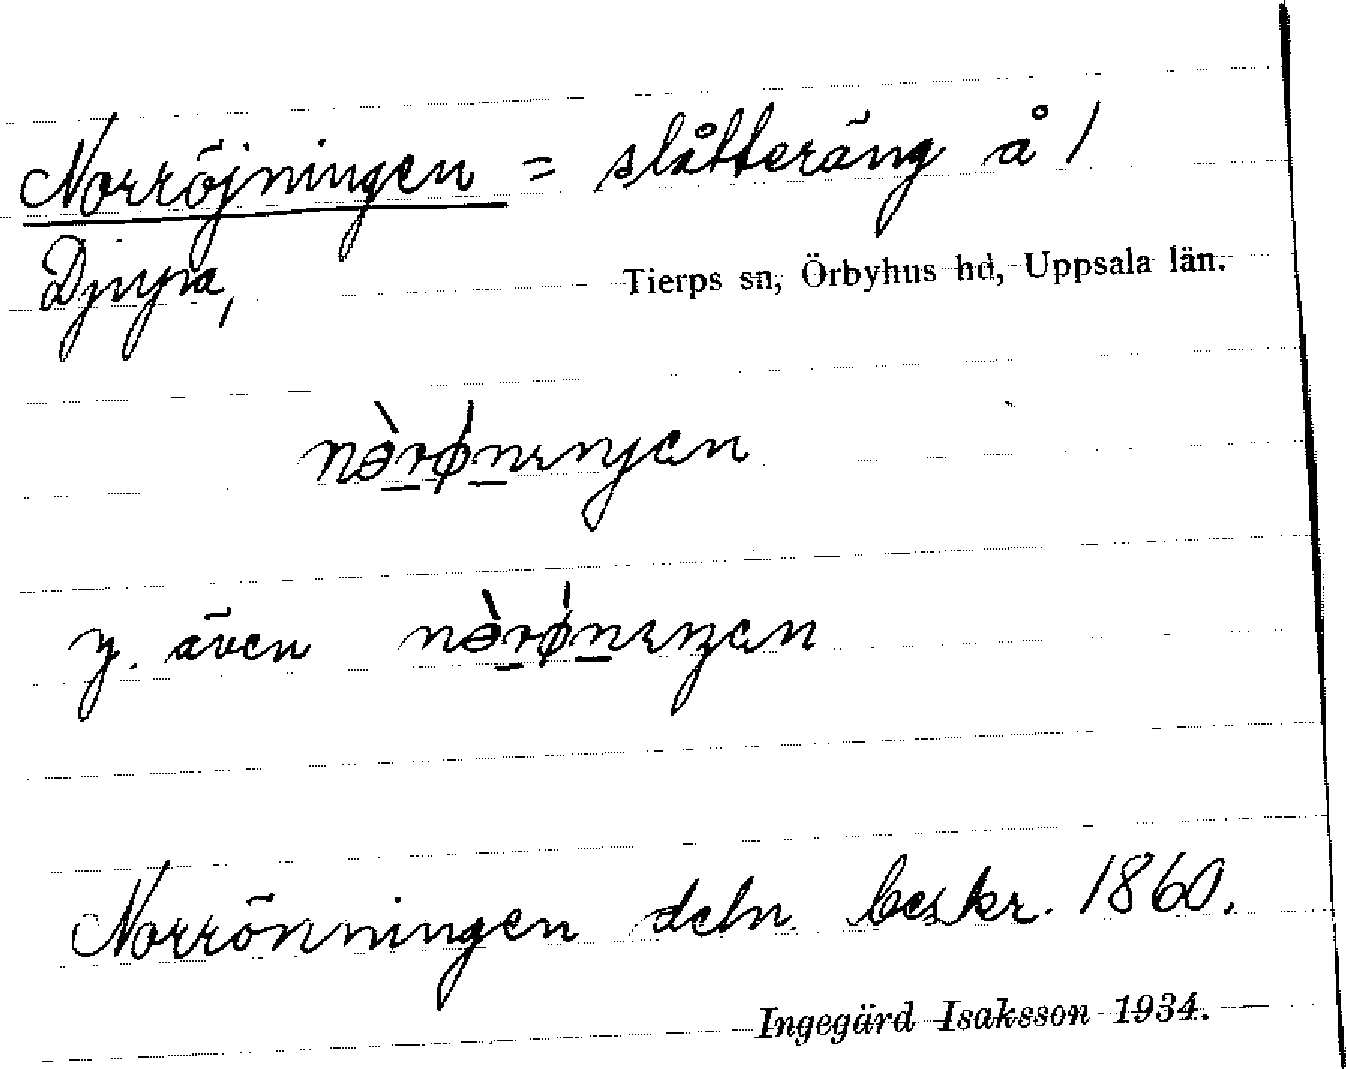 Norröjningen = slåtteräng å 1
Djupa,
Tierps sn, Örbyhus hd, Uppsala län.
y. även
Norrönningen deln. beskr. 1860.
Ingegärd Isaksson 1934.